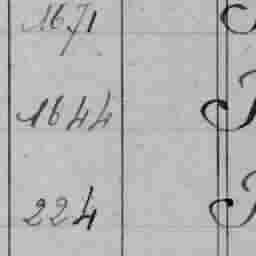 1671
1644
224